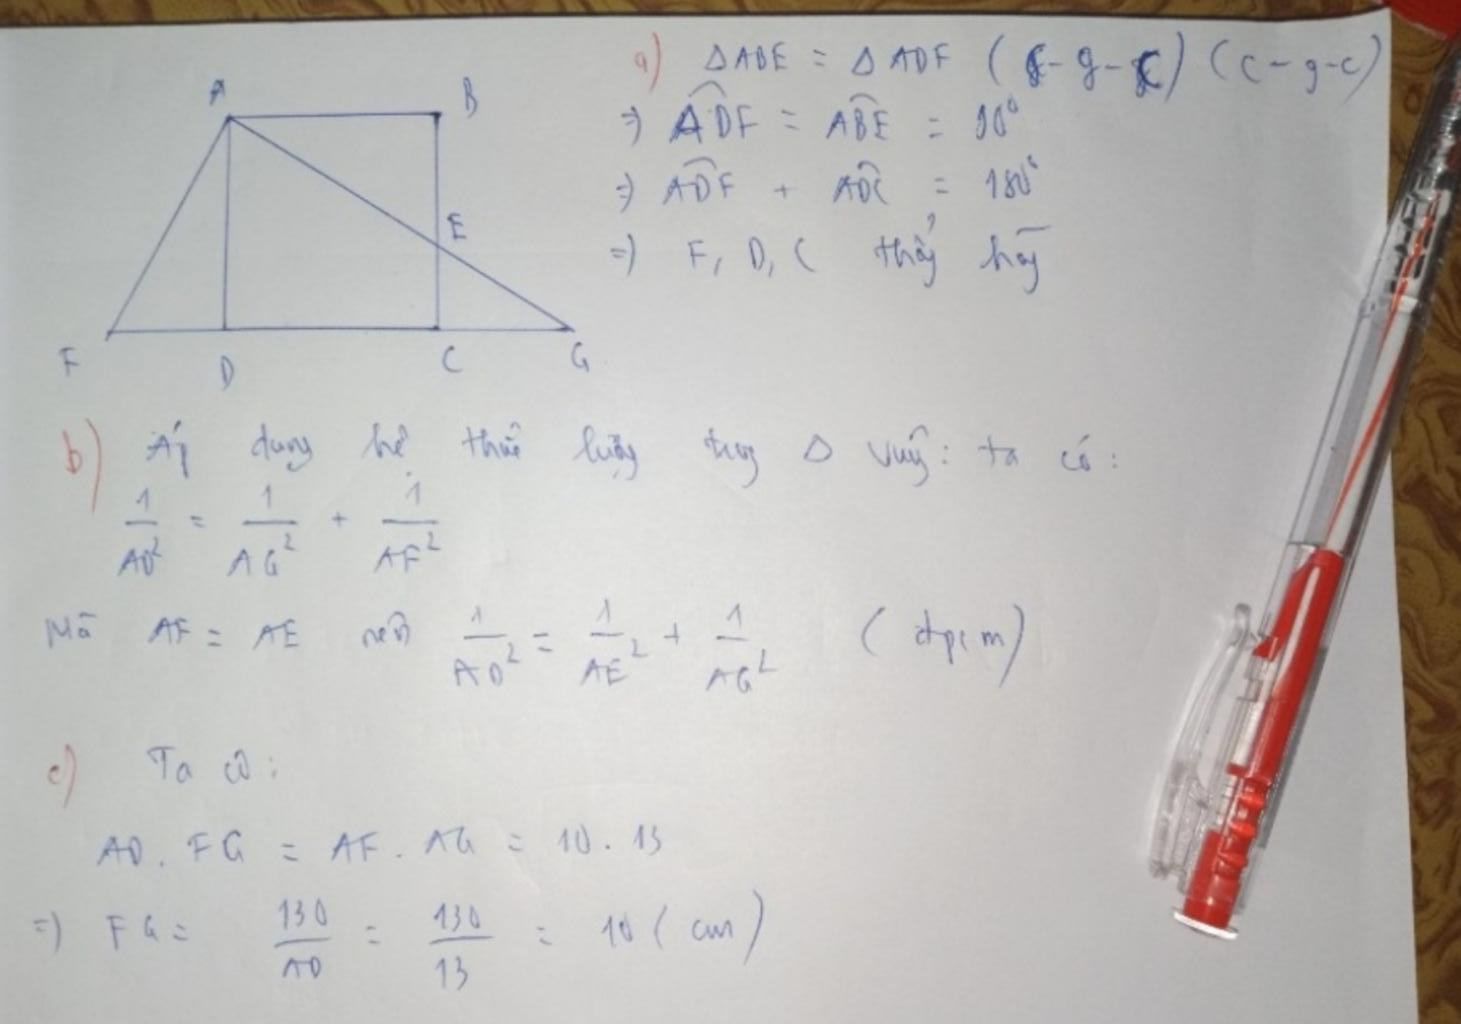 A B
E
F D C G
a) ΔABE = ΔADF (c-g-c) (c-g-c)
=> ADF = ABE = 90°
=> ADF + ADC = 180°
=> F, D, C thẳng hàng
b) Áp dụng hệ thức lượng trong Δ vuông: ta có:
1/AD² = 1/AG² + 1/AF²
Mà AF = AE nên 1/AD² = 1/AE² + 1/AG² (đpcm)
c) Ta có:
AD . FG = AF . AG = 10 . 13
=> FG = 130/AD = 130/13 = 10 (cm)